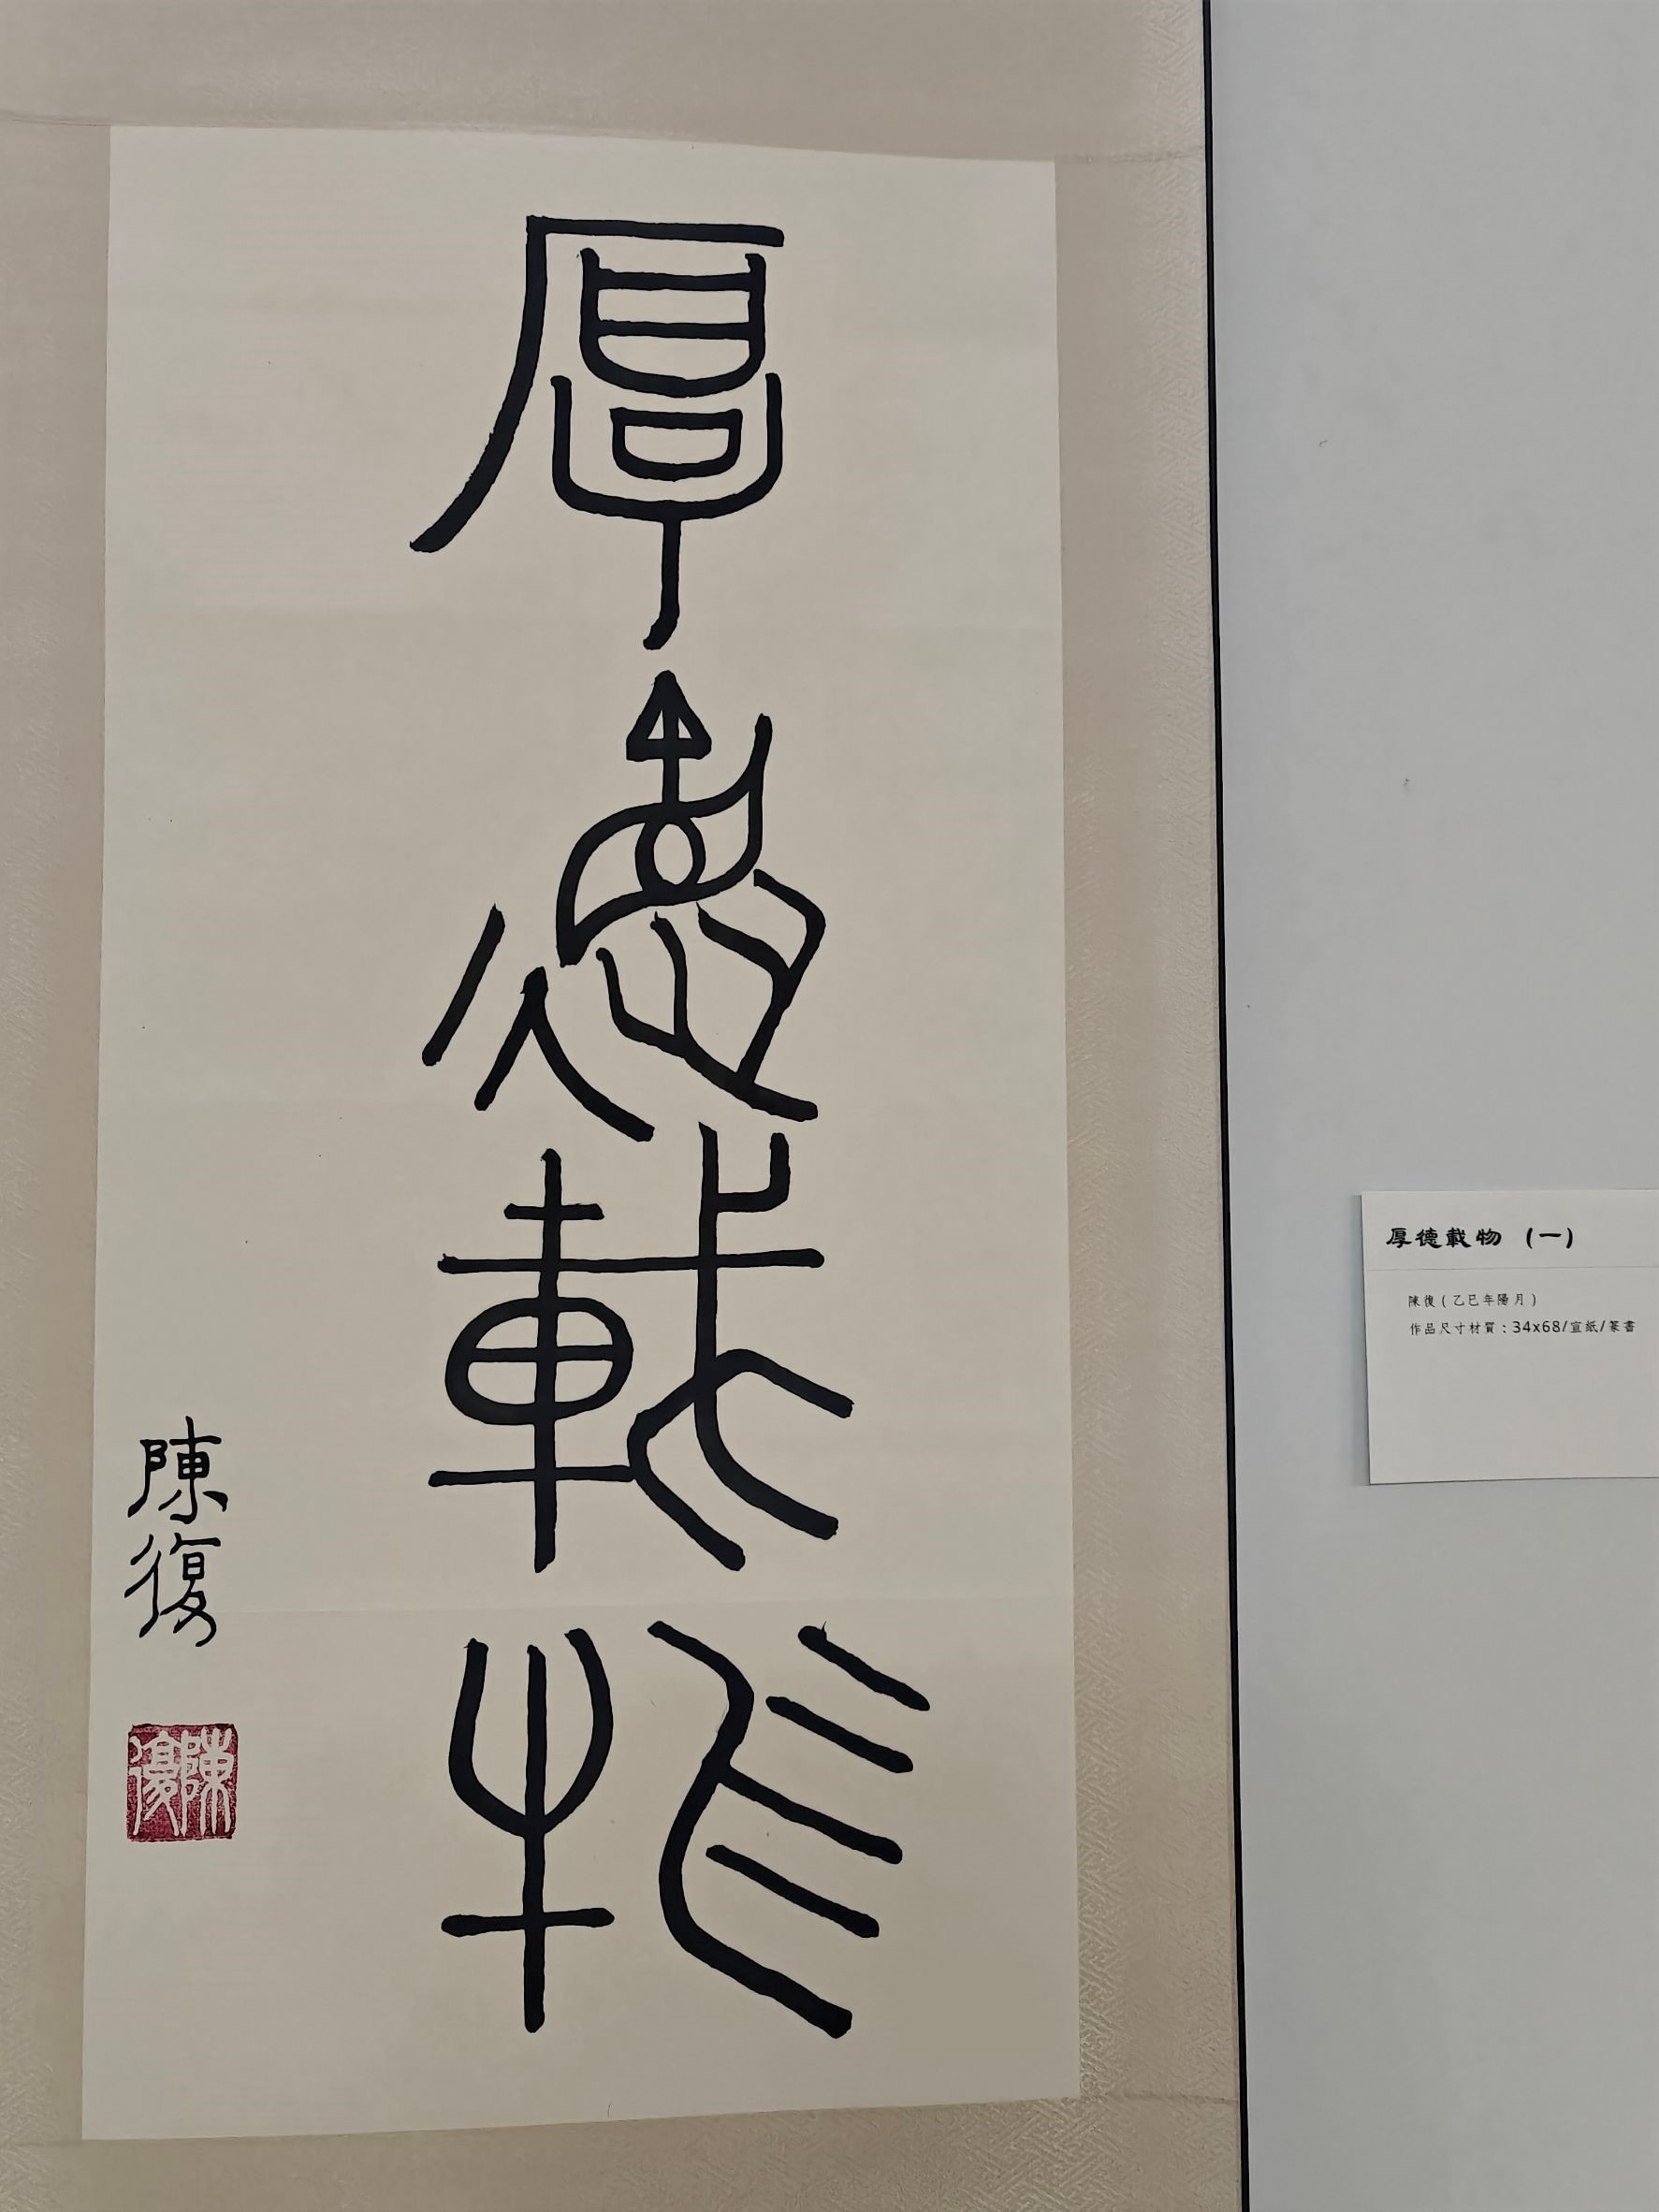 厚德載物
陳復
陳復
厚德載物 (一)
陳復(乙巳年陽月)
作品尺寸材質:34x68/宣紙/篆書